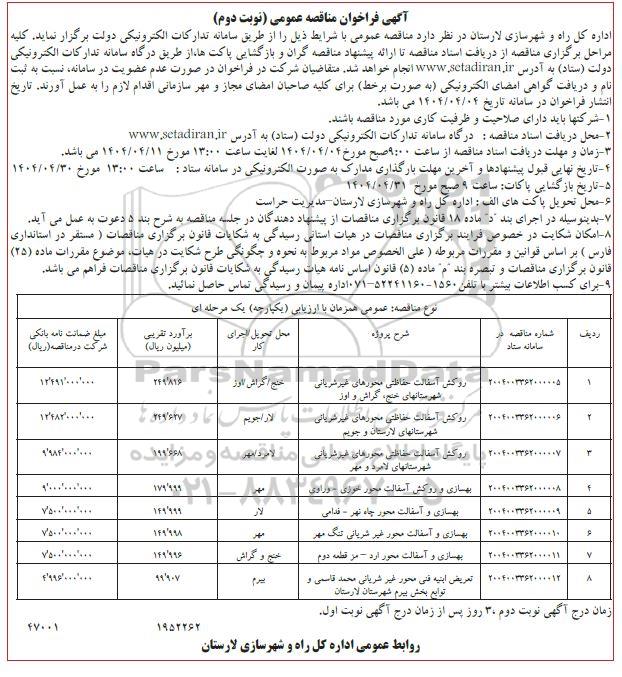 آگهی فراخوان مناقصه عمومی (نوبت دوم)
اداره کل راه و شهرسازی لارستان در نظر دارد مناقصه عمومی با شرایط ذیل را از طریق سامانه تدارکات الکترونیکی دولت برگزار نماید. کلیه
مراحل برگزاری مناقصه از دریافت اسناد مناقصه تا ارائه پیشنهاد مناقصه گران و بازگشایی پاکت ها،از طریق درگاه سامانه تدارکات الکترونیکی
دولت (ستاد) به آدرس www.setadiran.ir انجام خواهد شد. متقاضیان شرکت در فراخوان در صورت عدم عضویت در سامانه، نسبت به ثبت
نام و دریافت گواهی امضای الکترونیکی (به صورت برخط) برای کلیه صاحبان امضای مجاز و مهر سازمانی اقدام لازم را به عمل آورند. تاریخ
انتشار فراخوان در سامانه تاریخ ۱۴۰۴/۰۴/۰۴ می باشد.
۱-شرکتها باید دارای صلاحیت و ظرفیت کاری مورد مناقصه باشند.
۲-محل دریافت اسناد مناقصه : درگاه سامانه تدارکات الکترونیکی دولت (ستاد) به آدرس www.setadiran.ir
۳-زمان و مهلت دریافت اسناد مناقصه از ساعت ۹:۰۰صبح مورخ۱۴۰۴/۰۴/۰۴ لغایت ساعت ۱۳:۰۰ مورخ ۱۴۰۴/۰۴/۱۱ می باشد.
۴-تاریخ نهایی قبول پیشنهادها و آخرین مهلت بارگذاری مدارک به صورت الکترونیکی در سامانه ستاد : ساعت ۱۳:۰۰ مورخ ۱۴۰۴/۰۴/۳۰
۵-تاریخ بازگشایی پاکات: ساعت ۹ صبح مورخ ۱۴۰۴/۰۴/۳۱
۶-محل تحویل پاکت های الف : اداره کل راه و شهرسازی لارستان-مدیریت حراست
۷-بدینوسیله در اجرای بند "د" ماده ۱۸ قانون برگزاری مناقصات از پیشنهاد دهندگان در جلسه مناقصه به شرح بند ۵ دعوت به عمل می آید.
۸-امکان شکایت در خصوص فرایند برگزاری مناقصات در هیات استانی رسیدگی به شکایات قانون برگزاری مناقصات ( مستقر در استانداری
فارس ) بر اساس قوانین و مقررات مربوطه ( علی الخصوص مواد مربوط به نحوه و چگونگی طرح شکایت در هیات، موضوع مقررات ماده (۲۵)
قانون برگزاری مناقصات و تبصره بند "م" ماده (۵) قانون اساس نامه هیات رسیدگی به شکایات قانون برگزاری مناقصات فراهم می باشد.
۹-برای کسب اطلاعات بیشتر با تلفن۱۵۶۰-۰۷۱-۵۲۲۴۱۱۶۰اداره پیمان و رسیدگی تماس حاصل نمائید.
نوع مناقصه: عمومی همزمان با ارزیابی (یکپارچه) یک مرحله ای
ردیف شماره مناقصه در سامانه ستاد شرح پروژه محل تحویل/اجرای کار برآورد تقریبی (میلیون ریال) مبلغ ضمانت نامه بانکی شرکت درمناقصه(ریال)
۱ ۲۰۰۴۰۰۳۳۶۲۰۰۰۰۰۵ روکش آسفالت حفاظتی محورهای غیرشریانی شهرستانهای خنج، گراش و اوز خنج/گراش/اوز ۲۴۹٬۸۱۶ ۱۲٬۴۹۱٬۰۰۰٬۰۰۰
۲ ۲۰۰۴۰۰۳۳۶۲۰۰۰۰۰۶ روکش آسفالت حفاظتی محورهای غیرشریانی شهرستانهای لارستان و جویم لار/جویم ۲۴۹٬۶۲۷ ۱۲٬۴۸۲٬۰۰۰٬۰۰۰
۳ ۲۰۰۴۰۰۳۳۶۲۰۰۰۰۰۷ روکش آسفالت حفاظتی محورهای غیرشریانی شهرستانهای لامرد و مهر لامرد/مهر ۱۹۹٬۶۶۸ ۹٬۹۸۴٬۰۰۰٬۰۰۰
۴ ۲۰۰۴۰۰۳۳۶۲۰۰۰۰۰۸ بهسازی و روکش آسفالت محور خوزی - وراوی مهر ۱۷۹٬۹۹۹ ۹٬۰۰۰٬۰۰۰٬۰۰۰
۵ ۲۰۰۴۰۰۳۳۶۲۰۰۰۰۰۹ بهسازی و آسفالت محور چاه نهر - فدامی لار ۱۴۹٬۹۹۹ ۷٬۵۰۰٬۰۰۰٬۰۰۰
۶ ۲۰۰۴۰۰۳۳۶۲۰۰۰۰۱۰ بهسازی و آسفالت محور غیر شریانی تنگ مهر مهر ۱۴۹٬۹۹۸ ۷٬۵۰۰٬۰۰۰٬۰۰۰
۷ ۲۰۰۴۰۰۳۳۶۲۰۰۰۰۱۱ بهسازی و آسفالت محور ارد - مز قطعه دوم خنج و گراش ۱۴۹٬۹۹۶ ۷٬۵۰۰٬۰۰۰٬۰۰۰
۸ ۲۰۰۴۰۰۳۳۶۲۰۰۰۰۱۲ تعریض ابنیه فنی محور غیر شریانی محمد قاسمی و توابع بخش بیرم شهرستان لارستان بیرم ۹۹٬۹۰۷ ۴٬۹۹۶٬۰۰۰٬۰۰۰
زمان درج آگهی نوبت دوم ،۳ روز پس از زمان درج آگهی نوبت اول.
۱۹۵۲۲۶۲ ۴۷۰۰۱
روابط عمومی اداره کل راه و شهرسازی لارستان
ParsNamadData
۰۲۱-۸۸۳۴۹۶۷۰-۵